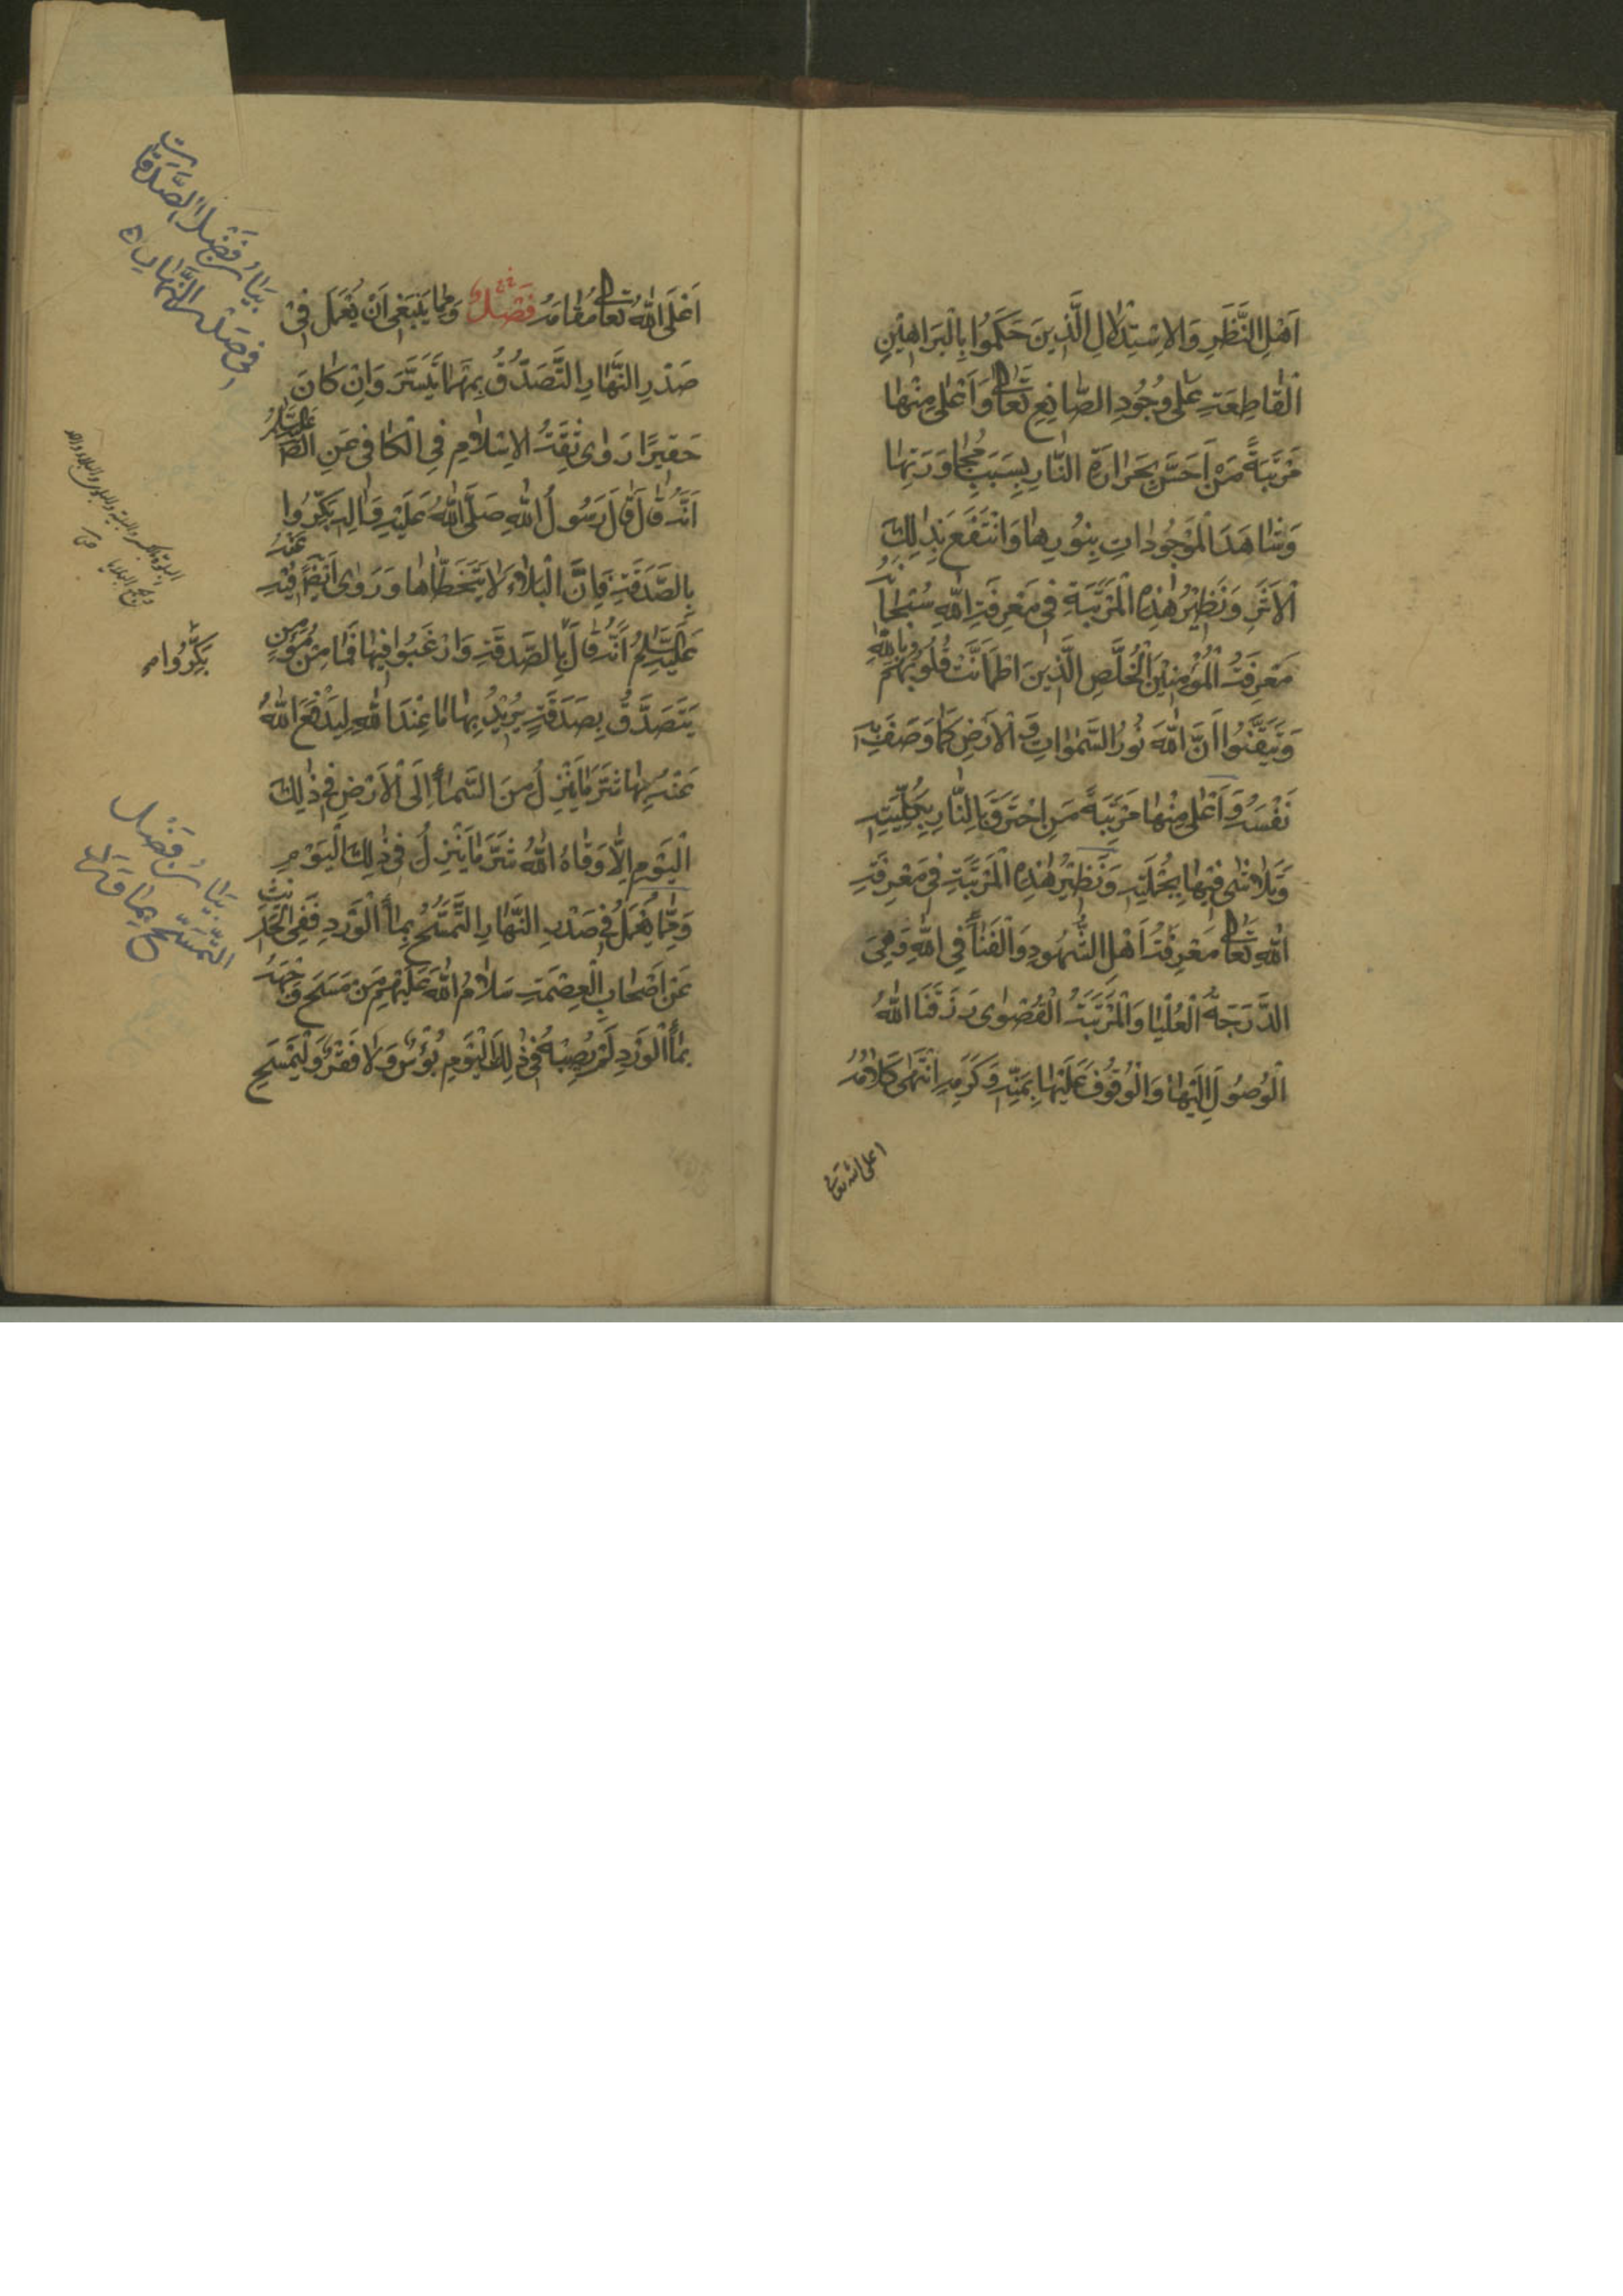 اَهْلِ النَّظَرِ وَالاِسْتِدْلالِ الَّذينَ حَكَمُوا بِالْبَراهينِ
الْقاطِعَةِ عَلى وُجُودِ الصّانِعِ تَعالى وَاَعْلى مِنْها
مَرْتَبَةً مَنْ اَحَسَّ بِحَرارَةِ النّارِ بِسَبَبِ مُجاوَرَتِها
وَشاهَدَ الْمَوْجُوداتِ بِنُورِها وَانْتَفَعَ بِذلِكَ
الْاَثَرِ وَنَظيرُ هٰذِهِ الْمَرْتَبَةِ فى مَعْرِفَةِ اللهِ سُبْحانَهُ
مَعْرِفَةُ الْمُؤْمِنينَ الْخُلَّصِ الَّذينَ اطْمَاَنَّتْ قُلُوبُهُمْ بِاللهِ
وَتَيَقَّنُوا اَنَّ اللهَ نُورُ السَّمٰواتِ وَالْاَرْضِ كَما وَصَفَ بِهِ
نَفْسَهُ وَاَعْلى مِنْها مَرْتَبَةً مَنِ احْتَرَقَ بِالنّارِ بِكُلِّيَّتِهِ
وَتَلاشى فيها بِجُمْلَتِهِ وَنَظيرُ هٰذِهِ الْمَرْتَبَةِ فى مَعْرِفَةِ
اللهِ تَعالى مَعْرِفَةُ اَهْلِ الشُّهُودِ وَالْفَناءِ فِى اللهِ وَهِىَ
الدَّرَجَةُ الْعُلْيا وَالْمَرْتَبَةُ الْقُصْوى رَزَقَنَا اللهُ
الْوُصُولَ اِلَيْها وَالْوُقُوفَ عَلَيْها بِمَنِّهِ وَكَرَمِهِ انْتَهى كَلامُهُ
اعلى الله تعالى
اَعْلَى اللهُ تَعالى مُقامَهُ فَصْلٌ وَمِمّا يَنْبَغى اَنْ يُعْمَلَ فى
صَدْرِ النَّهارِ التَّصَدُّقُ بِمَهْما تَيَسَّرَ وَاِنْ كانَ
حَقيرًا رَوى ثِقَةُ الاِسْلامِ فِى الْكافى عَنِ الصّ عَلَيْهِ السَّلامُ
اَنَّهُ قالَ قالَ رَسُولُ اللهِ صَلَّى اللهُ عَلَيْهِ وَالِهِ بَكِّرُوا
بِالصَّدَقَةِ فَاِنَّ الْبَلاءَ لا يَتَخَطّاها وَرَوى اَيْضًا فيهِ عَنْهُ
عَلَيْهِ السَّلامُ اَنَّهُ قالَ بِالصَّدَقَةِ وَارْغَبُوا فيها فَما مِنْ مُؤْمِنٍ
يَتَصَدَّقُ بِصَدَقَةٍ يُريدُ بِها ما عِنْدَ اللهِ لِيَدْفَعَ اللهُ
عَنْهُ بِها شَرَّ ما يَنْزِلُ مِنَ السَّماءِ اِلَى الْاَرْضِ فى ذٰلِكَ
الْيَوْمِ اِلّا وَقاهُ اللهُ شَرَّ ما يَنْزِلُ فى ذٰلِكَ الْيَوْمِ
وَمِمّا يُعْمَلُ فى صَدْرِ النَّهارِ التَّمَسُّحُ بِماءِ الْوَرْدِ فَفِى الْحَديثِ
عَنْ اَصْحابِ الْعِصْمَةِ سَلامُ اللهِ عَلَيْهِمْ مَنْ مَسَحَ وَجْهَهُ
بِماءِ الْوَرْدِ لَمْ يُصِبْهُ فى ذٰلِكَ الْيَوْمِ بُؤْسٌ وَلا فَقْرٌ وَلْيَمْسَحْ
بَيانُ فَضْلِ الصَّدَقاتِ
فى صَدْرِ النَّهارِ
بَكِّرُوا
بَيانُ فَضْلِ
التَّمَسُّحِ بِماءِ